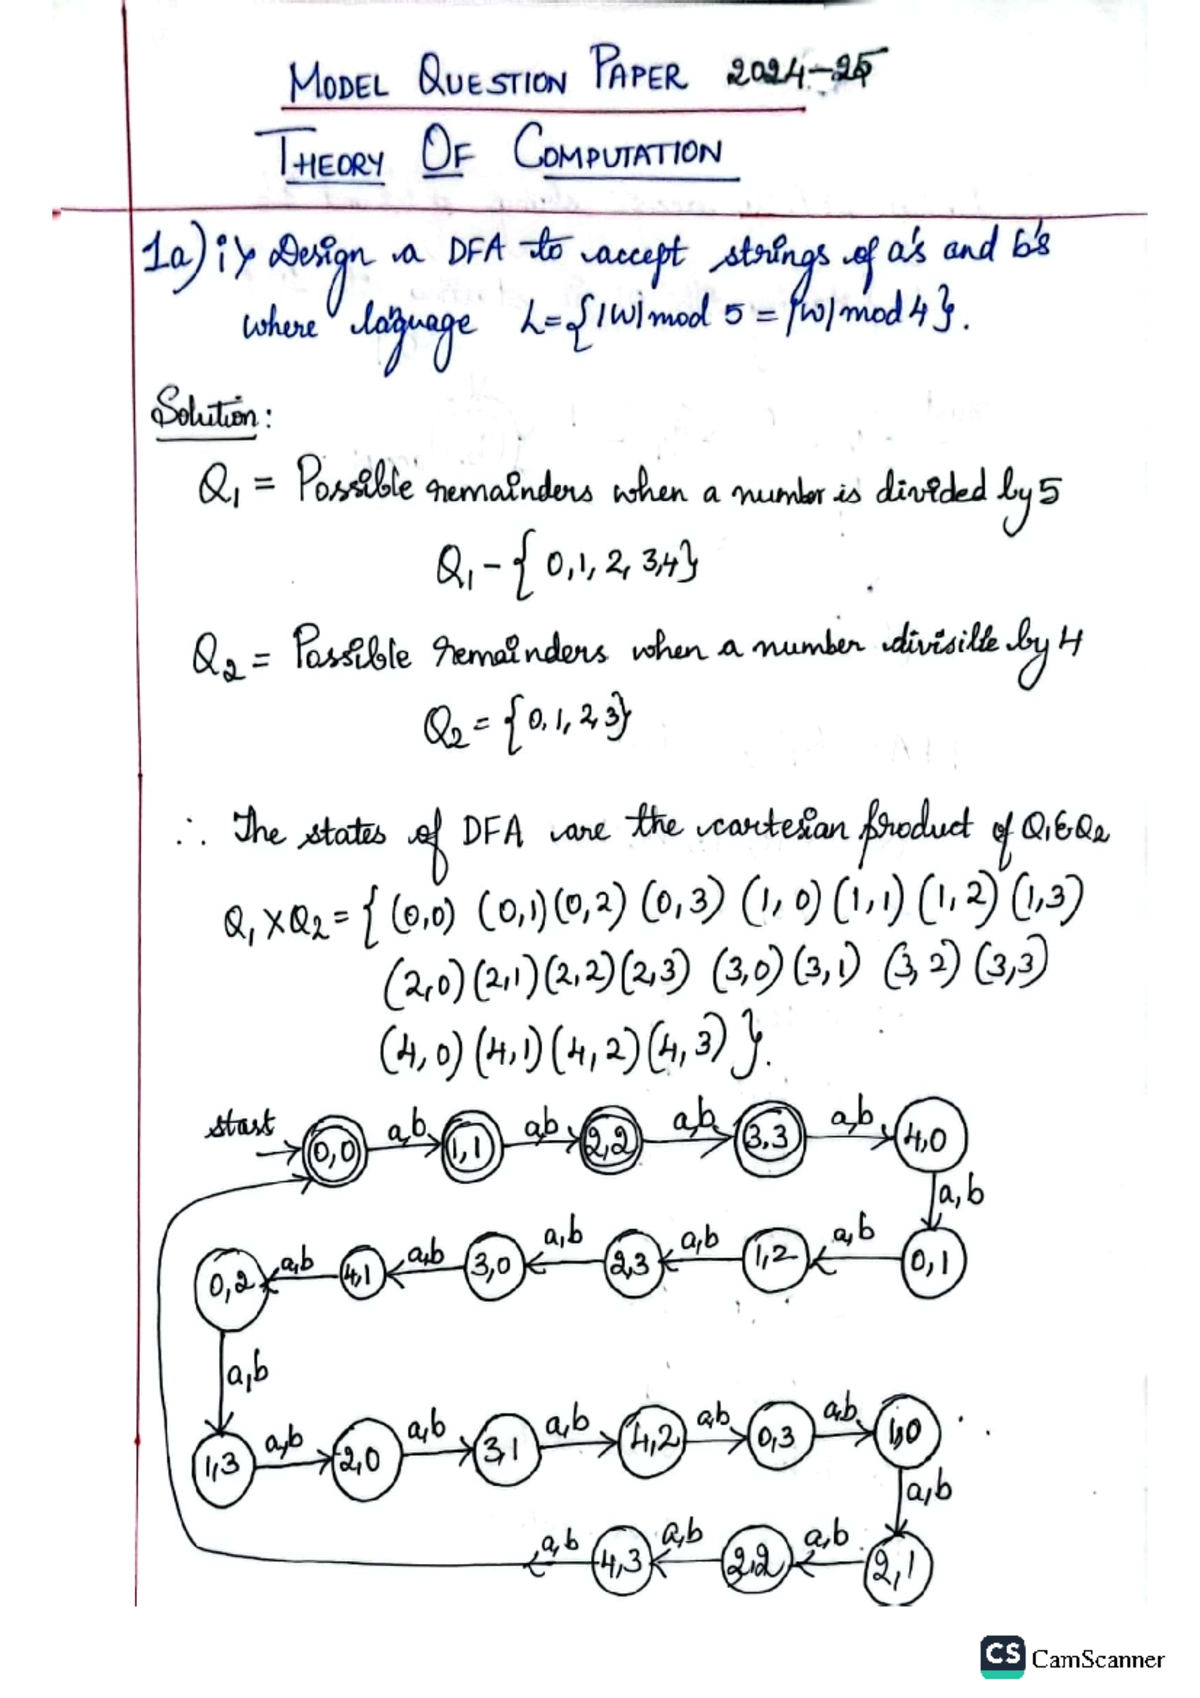 MODEL QUESTION PAPER 2024-25
THEORY OF COMPUTATION
1a) i) Design a DFA to accept strings of a's and b's
where laguage L={|W|mod 5 = |w|mod 4}.
Solution:
Q1 = Possible remainders when a number is divided by 5
Q1 - {0,1,2,3,4}
Q2 = Possible remainders when a number divisible by 4
Q2 = {0,1,2,3}
∴ The states of DFA are the cartesian product of Q1 & Q2
Q1 X Q2 = { (0,0) (0,1) (0,2) (0,3) (1,0) (1,1) (1,2) (1,3)
(2,0) (2,1) (2,2) (2,3) (3,0) (3,1) (3,2) (3,3)
(4,0) (4,1) (4,2) (4,3) }.
start 0,0 a,b 1,1 a,b 2,2 a,b 3,3 a,b 4,0
a,b
0,2 a,b 4,1 a,b 3,0 a,b 2,3 a,b 1,2 a,b 0,1
a,b
1,3 a,b 2,0 a,b 3,1 a,b 4,2 a,b 0,3 a,b 1,0
a,b
a,b 4,3 a,b 3,2 a,b 2,1
CS CamScanner